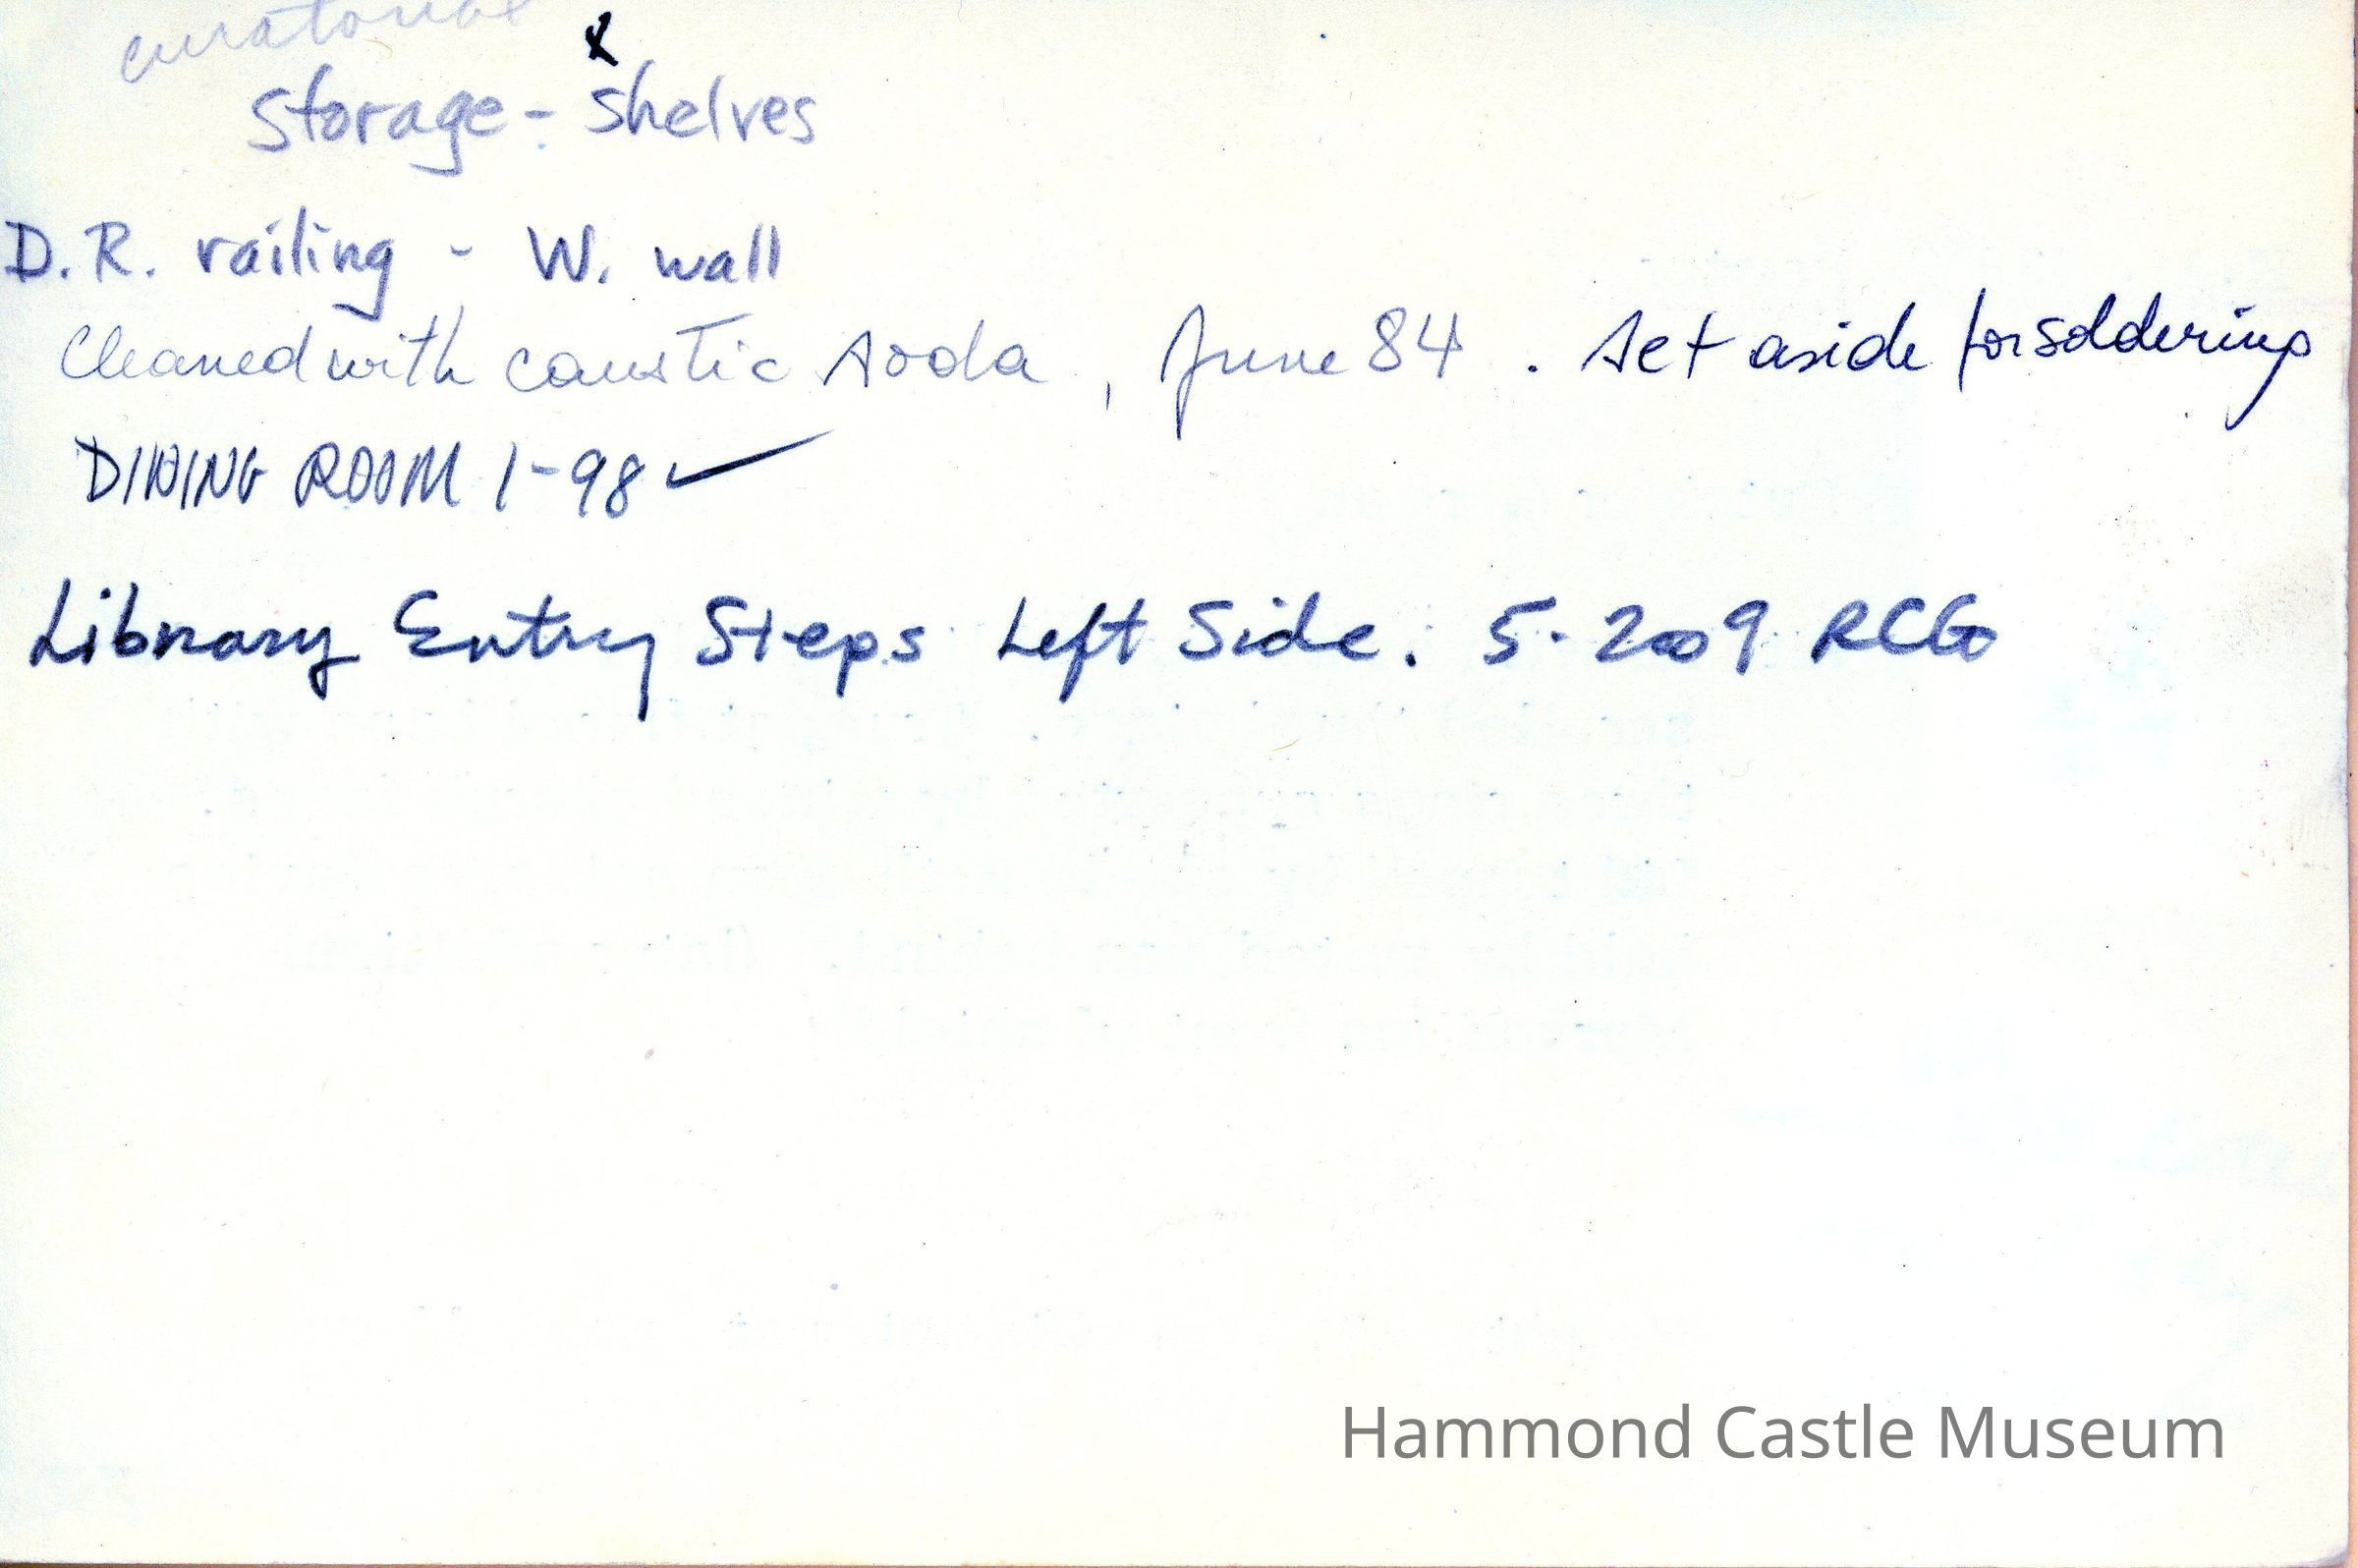 curatorial
x
Storage - Shelves
D. R. railing - W. wall
Cleaned with caustic soda, June 84. Set aside for soldering
DINING ROOM 1-98 ✓
Library Entry Steps Left Side. 5-2009 RCG
Hammond Castle Museum